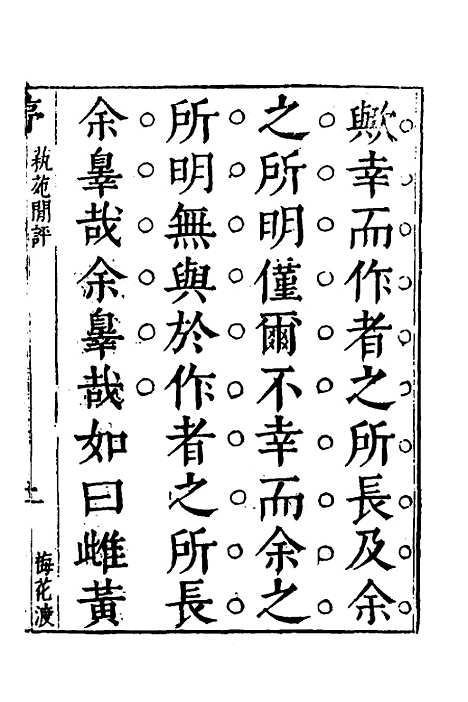 歟幸而作者之所長及余
之所明僅爾不幸而余之
所明無與於作者之所長
余辠哉余辠哉如曰雌黃
序 埶苑閒評 十一 梅花渡